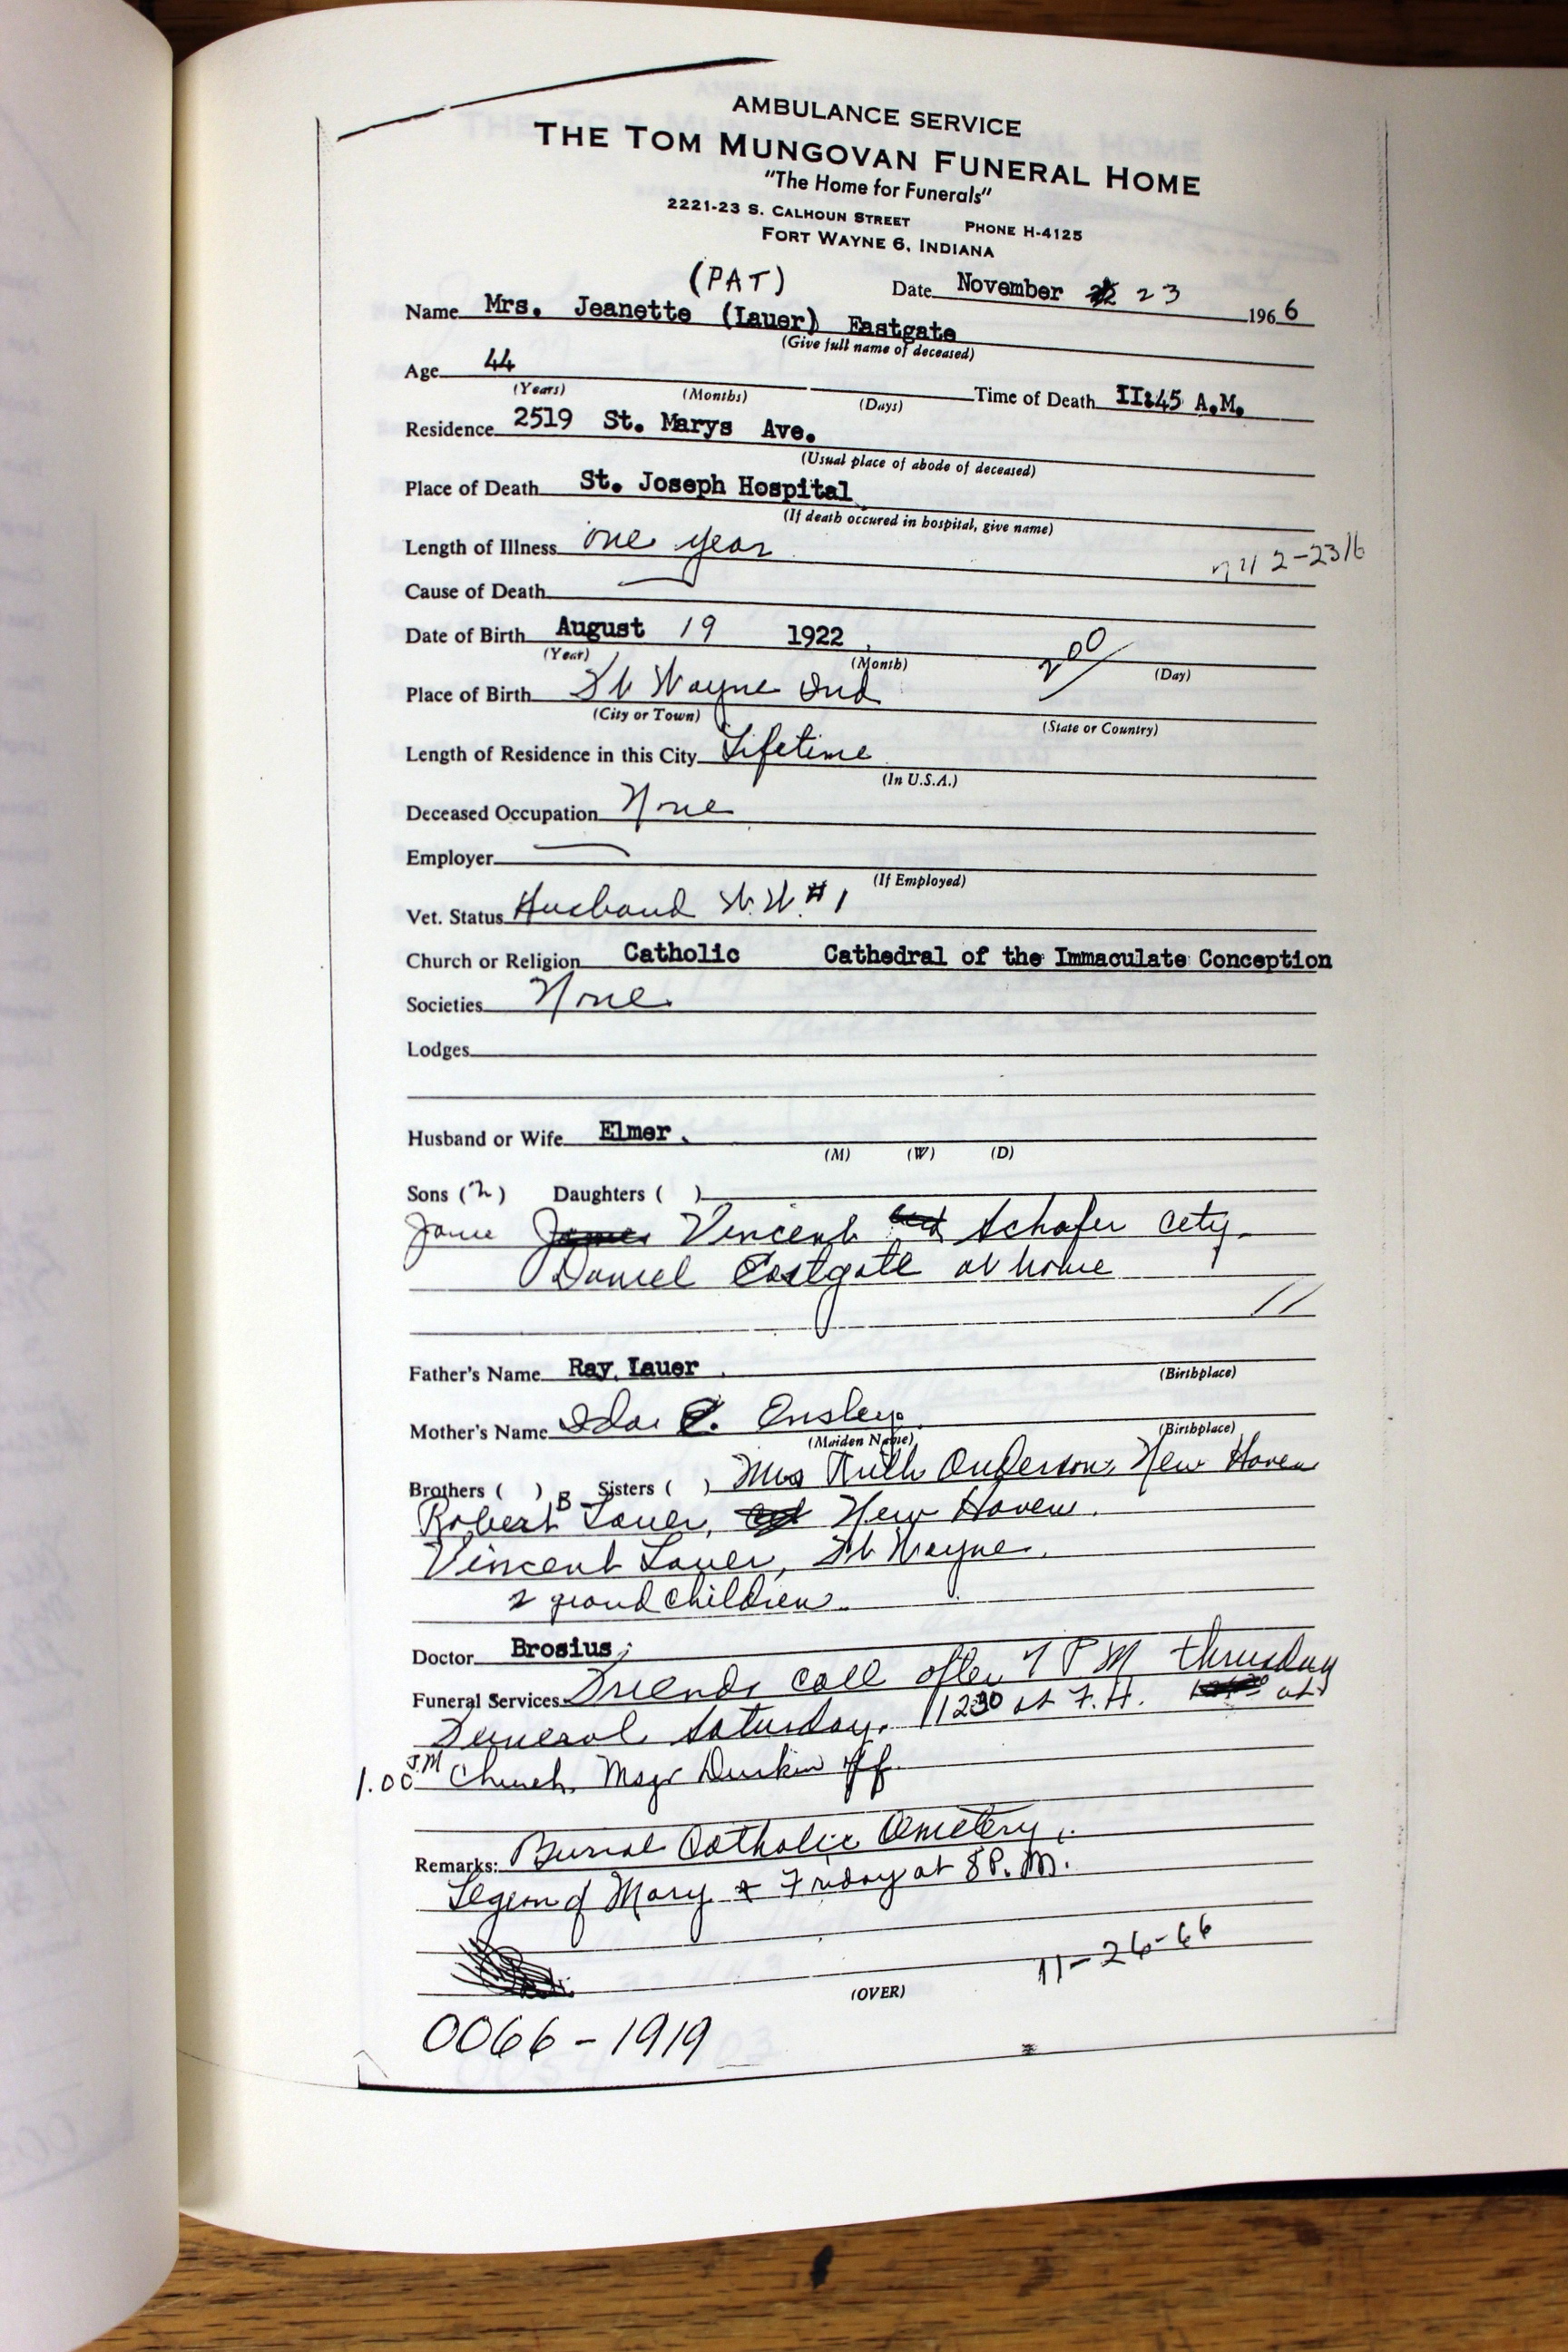 AMBULANCE SERVICE
THE TOM MUNGOVAN FUNERAL HOME
"The Home for Funerals"
2221-23 S. CALHOUN STREET PHONE H-4125
FORT WAYNE 6, INDIANA
(PAT)
Date November 23 1966
Name Mrs. Jeanette (Lauer) Eastgate
(Give full name of deceased)
Age 44 Time of Death II:45 A.M.
(Years) (Months) (Days)
Residence 2519 St. Marys Ave.
(Usual place of abode of deceased)
Place of Death St. Joseph Hospital
(If death occured in hospital, give name)
Length of Illness one year
2-2316
Cause of Death
Date of Birth August 19 1922
(Year) (Month) (Day)
200
Place of Birth Ft Wayne Ind
(City or Town) (State or Country)
Length of Residence in this City Lifetime
(In U.S.A.)
Deceased Occupation None
Employer
(If Employed)
Vet. Status Husband W.W. #1
Church or Religion Catholic Cathedral of the Immaculate Conception
Societies None
Lodges
Husband or Wife Elmer
(M) (W) (D)
Sons (2) Daughters ( )
Vincent Schafer City
Daniel Eastgate at home
11
Father's Name Ray Lauer
(Birthplace)
Mother's Name Ida E. Ensley
(Maiden Name) (Birthplace)
Brothers ( ) Sisters ( ) Mrs Ruth Anderson, New Haven
Robert B Lauer, New Haven.
Vincent Lauer, Ft Wayne.
2 grand children
Doctor Brosius
Funeral Services Friends call after 7 PM thrusday
Funeral Saturday. 1230 at F.H. at
1.00 PM Church Msgr Durkin Off.
Remarks: Burial Catholic Cemetery
Legion of Mary Friday at 8 P.M.
11-26-66
(OVER)
0066-1919